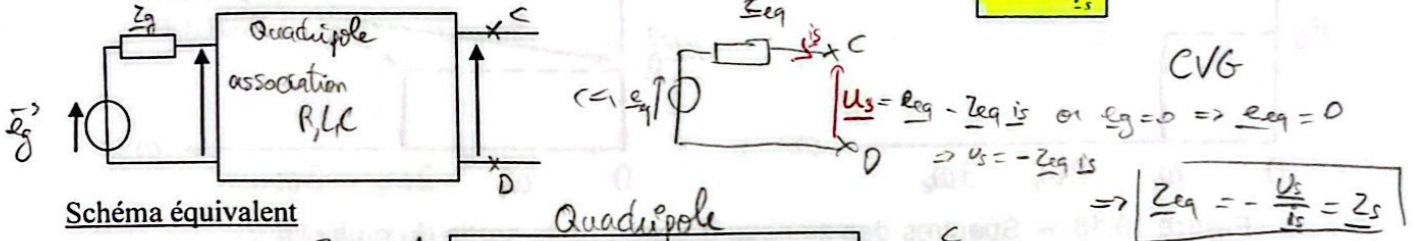 Zg
Quadripole
association
R, L, C
eg
C
D
Zeq
is
C
<=> eq
D
CVG
us = eeq - Zeq is or eg = 0 => eeq = 0
=> us = - Zeq is
=> Zeq = - us/is = Zs
Schéma équivalent
Quadripole